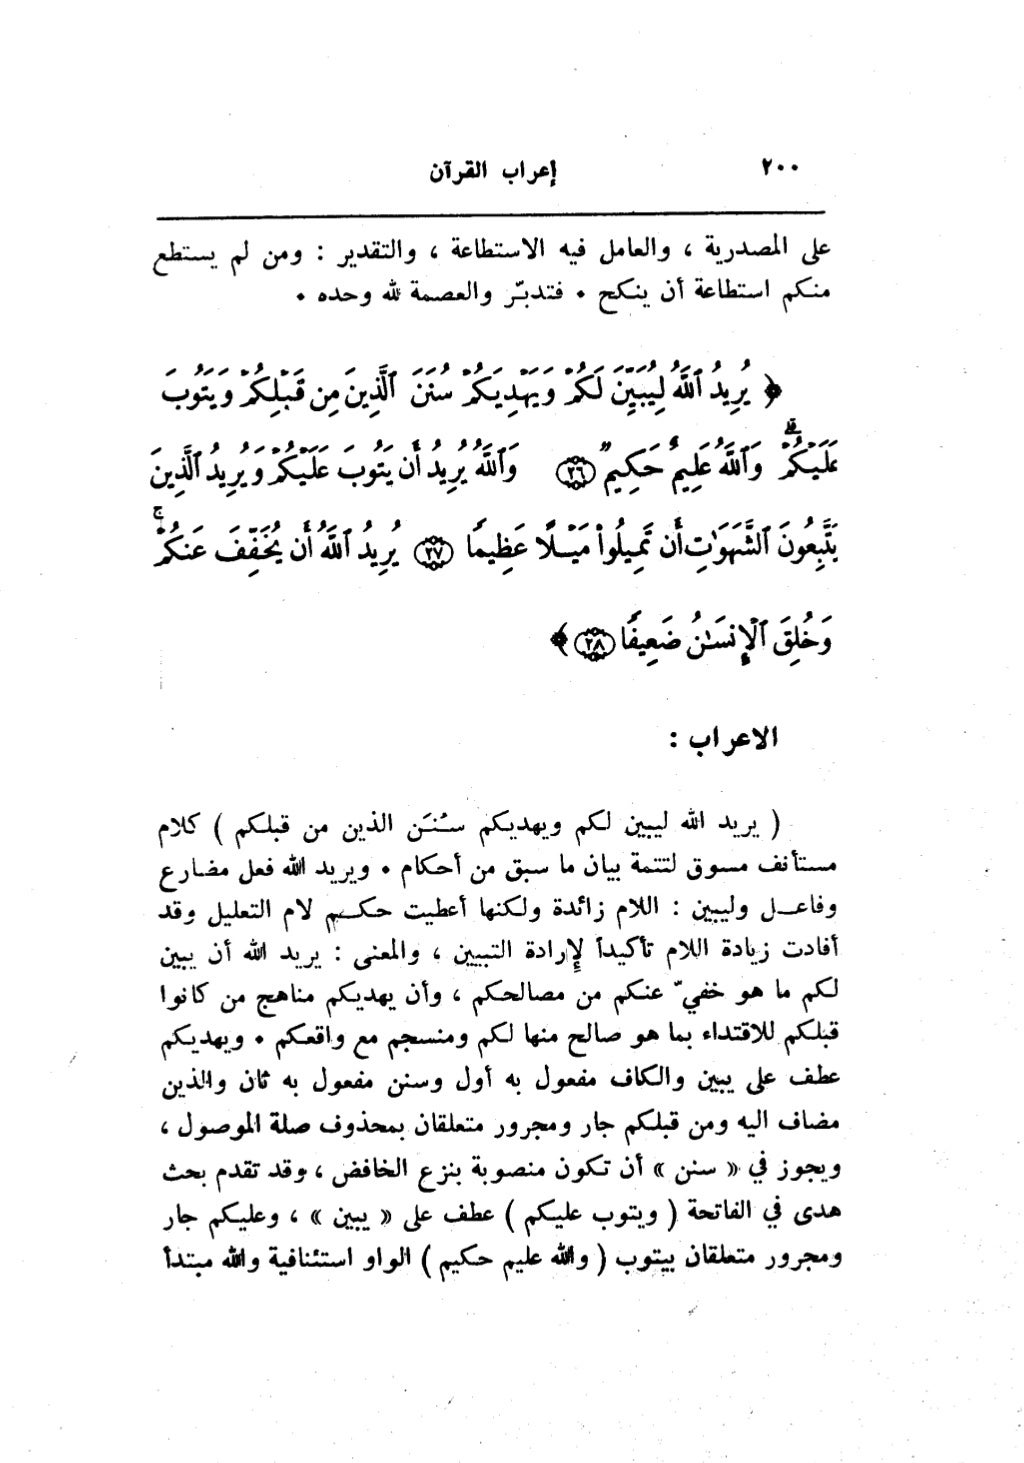 ٢٠٠ إعراب القرآن
على المصدرية ، والعامل فيه الاستطاعة ، والتقدير : ومن لم يستطع
منكم استطاعة أن ينكح • فتدبّر والعصمة لله وحده •
﴿ يُرِيدُ ٱللَّهُ لِيُبَيِّنَ لَكُمْ وَيَهْدِيَكُمْ سُنَنَ ٱلَّذِينَ مِن قَبْلِكُمْ وَيَتُوبَ
عَلَيْكُمْ ۗ وَٱللَّهُ عَلِيمٌ حَكِيمٌ ﴿٢٦﴾ وَٱللَّهُ يُرِيدُ أَن يَتُوبَ عَلَيْكُمْ وَيُرِيدُ ٱلَّذِينَ
يَتَّبِعُونَ ٱلشَّهَوَٰتِ أَن تَمِيلُوا۟ مَيْلًا عَظِيمًا ﴿٢٧﴾ يُرِيدُ ٱللَّهُ أَن يُخَفِّفَ عَنكُمْ ۚ
وَخُلِقَ ٱلْإِنسَٰنُ ضَعِيفًا ﴿٢٨﴾ ﴾
الاعراب :
( يريد الله ليبين لكم ويهديكم سُنَن الذين من قبلكم ) كلام
مستأنف مسوق لتتمة بيان ما سبق من أحكام • ويريد الله فعل مضارع
وفاعل وليبين : اللام زائدة ولكنها أعطيت حكم لام التعليل وقد
أفادت زيادة اللام تأكيداً لإرادة التبيين ، والمعنى : يريد الله أن يبين
لكم ما هو خفيّ عنكم من مصالحكم ، وأن يهديكم مناهج من كانوا
قبلكم للاقتداء بما هو صالح منها لكم ومنسجم مع واقعكم • ويهديكم
عطف على يبين والكاف مفعول به أول وسنن مفعول به ثان والذين
مضاف اليه ومن قبلكم جار ومجرور متعلقان بمحذوف صلة الموصول ،
ويجوز في « سنن » أن تكون منصوبة بنزع الخافض ، وقد تقدم بحث
هدى في الفاتحة ( ويتوب عليكم ) عطف على « يبين » ، وعليكم جار
ومجرور متعلقان بيتوب ( والله عليم حكيم ) الواو استئنافية والله مبتدأ